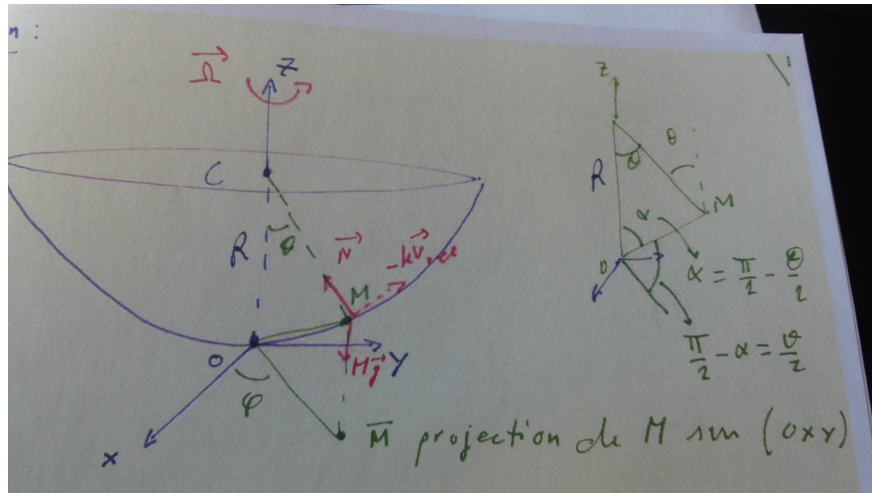 n :
Ω
Z
C
R
θ
N
-kV
M
O
Mg
Y
φ
X
M̄ projection de M sur (OXY)
Z
R
θ
θ
M
α
O
α = π/2 - θ/2
π/2 - α = θ/2